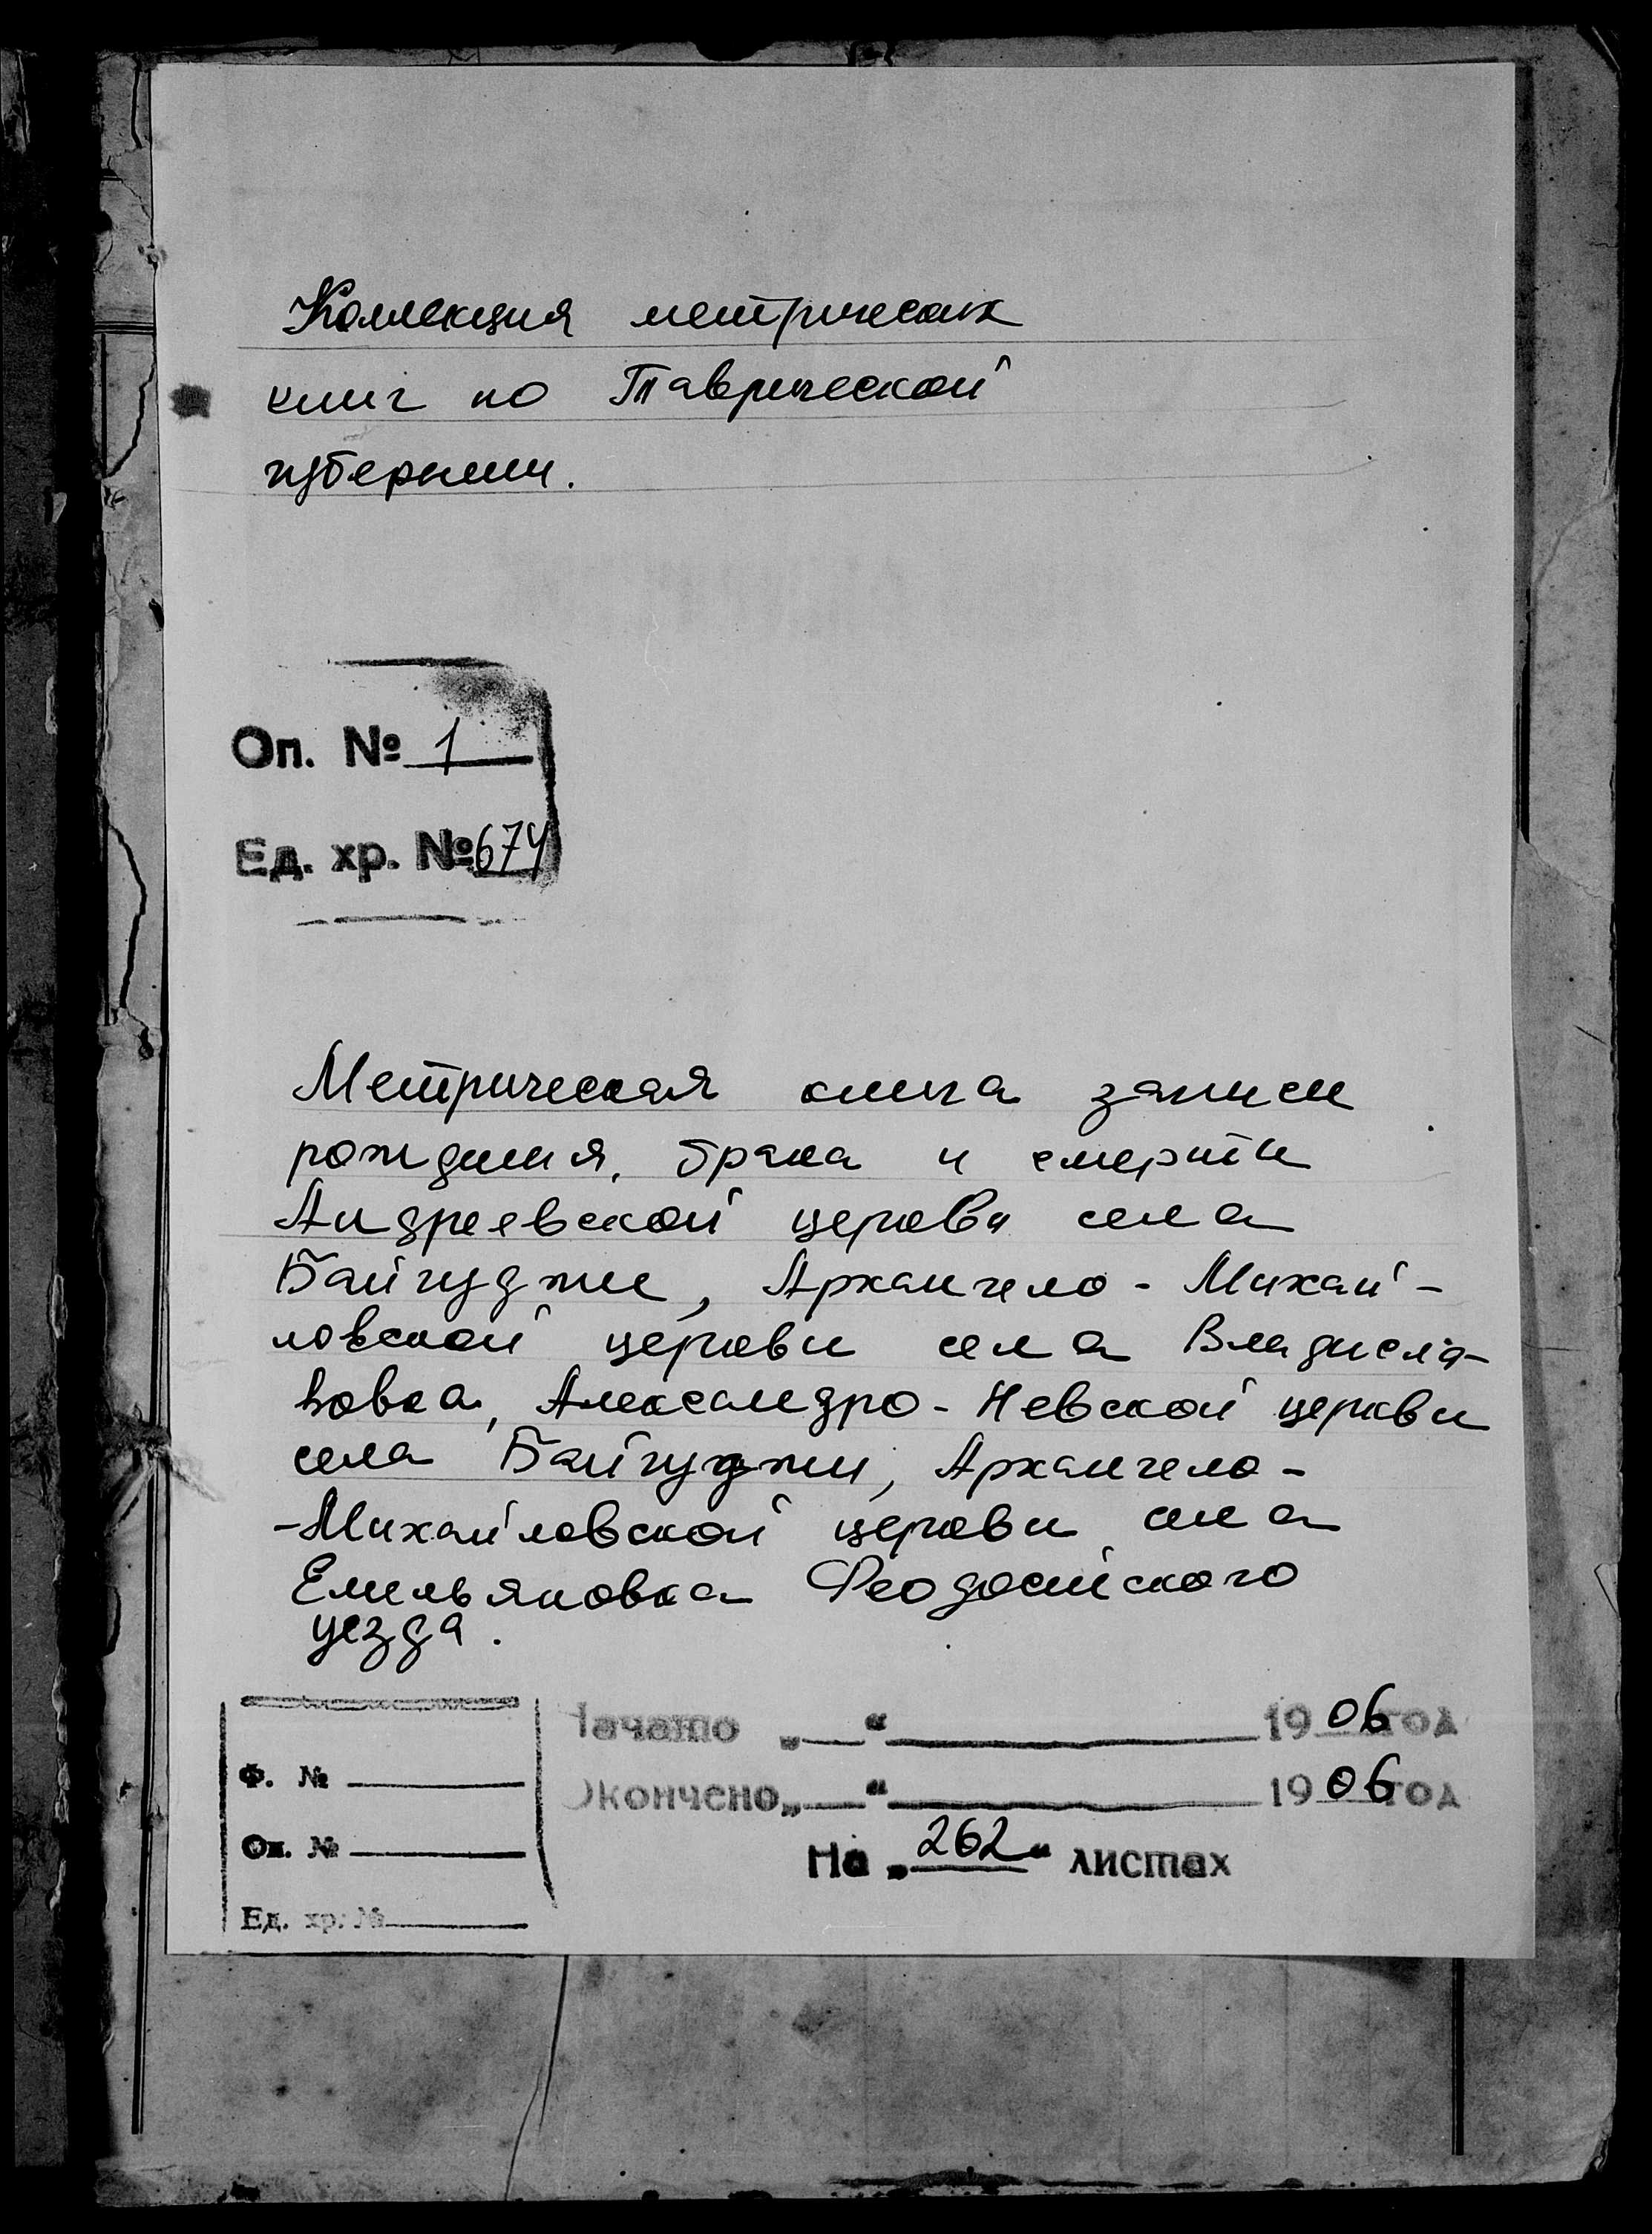 Коллекция метрических
книг по Таврической
губернии.
Оп. № 1
Ед. хр. № 674
Метрическая книга записи
рождения, брака и смерти
Андреевской церкви села
Байгуджи, Архангело-Михай-
ловской церкви села Владисла-
вовка, Александро-Невской церкви
села Байгуджи, Архангело-
-Михайловской церкви села
Емельяновка Феодосийского
уезда.
Начато „ “ 1906 год
Окончено „ “ 1906 год
На „262“ листах
Ф. №
Оп. №
Ед. хр. №